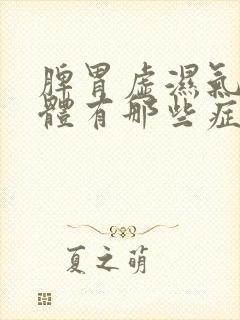 脾胃虛濕氣
體有哪些症
夏之萌